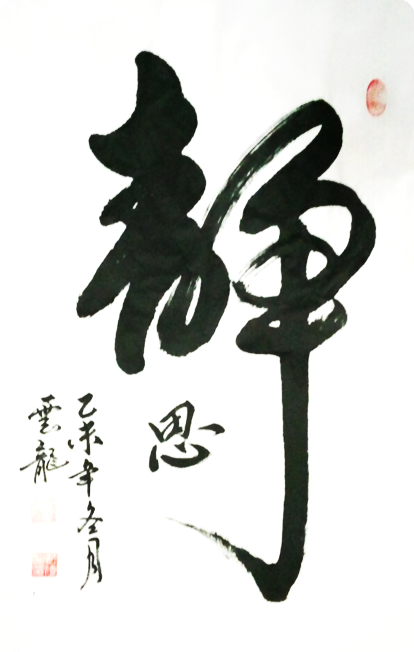 静
思
乙未年冬月
雲龍